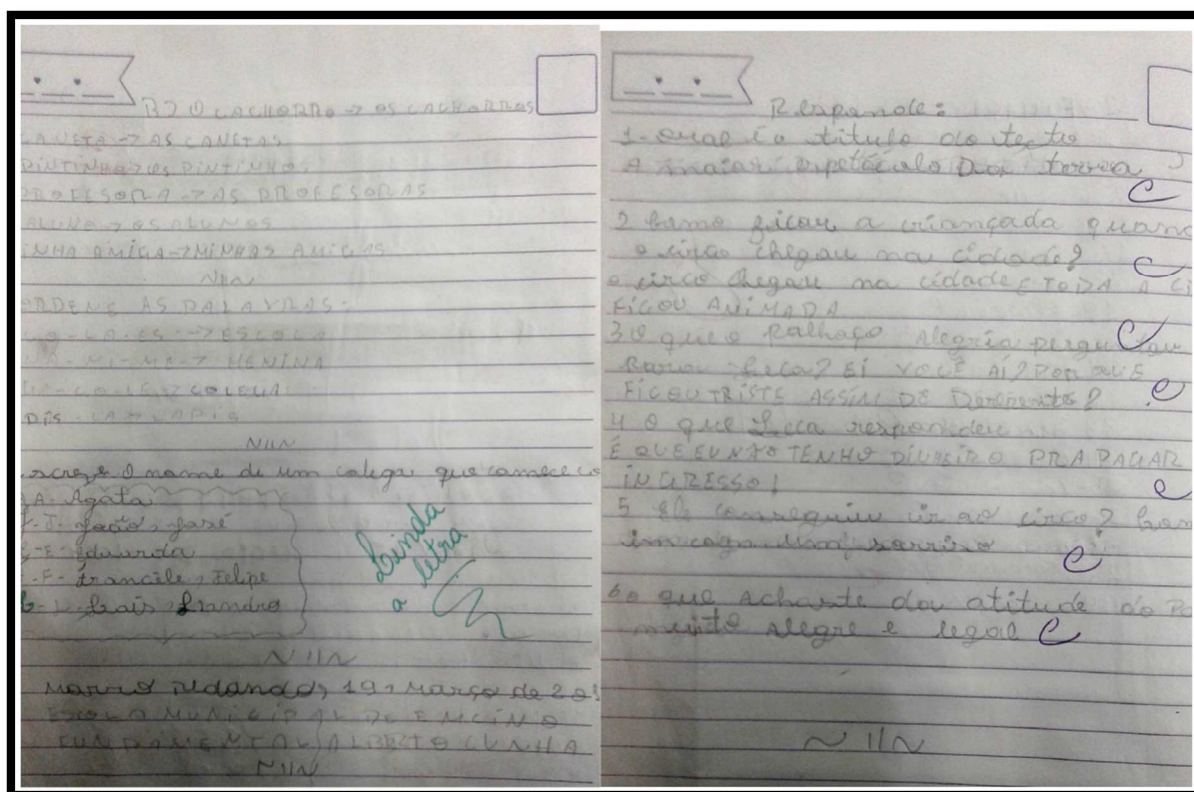 B) O CACHORRO → OS CACHORROS
CANETA → AS CANETAS
PINTINHO → OS PINTINHOS
PROFESORA → AS PROFESORAS
ALUNO → OS ALUNOS
INHA AMIGA → MINHAS AMIGAS
ORDENE AS PALAVRAS:
CO - LA - ES → ESCOLA
NA - NI - ME → MENINA
CO - LE
DIS - LA → LAPIS
escreve o nome de um colega que comece co
A - Agata
J - João, José
E - Eduarda
F - Francile, Felipe
L - Laís Leandro
Linda
a letra
Morro redondo, 19, março de 20
ESCOLA MUNICIPAL DE EMCINO
FUNDAMENTAL ALBERTO CUNHA
Responde:
1 - Qual é o título do texto
A maior espetácalo Da terra
2 Como ficou a criançada quand
o circo chegou na cidade?
o circo chegou na cidade E TODA A CI
FICOU ANIMADA
3 O que o Palhaço Alegria perguntou
para Leca? EI VOCÊ AÍ? POR QUE
FICOU TRISTE ASSIM DE Derepente?
4 O que Leca respondeu
É QUE EU NÃO TENHO DINHEIRO PRA PAGAR
INGRESSO!
5 Ele conseguiu ir ao circo? Com
um sorriso
6 o que achaste da atitude do Pa
muito alegre e legal